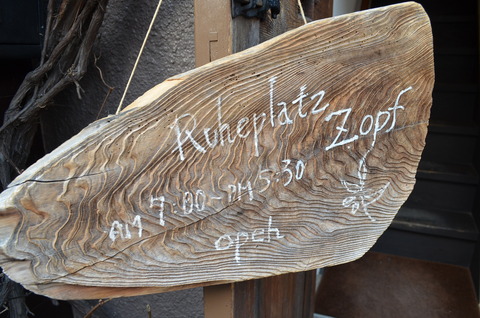 Ruheplatz Zopf
AM 7:00~PM 5:30
open